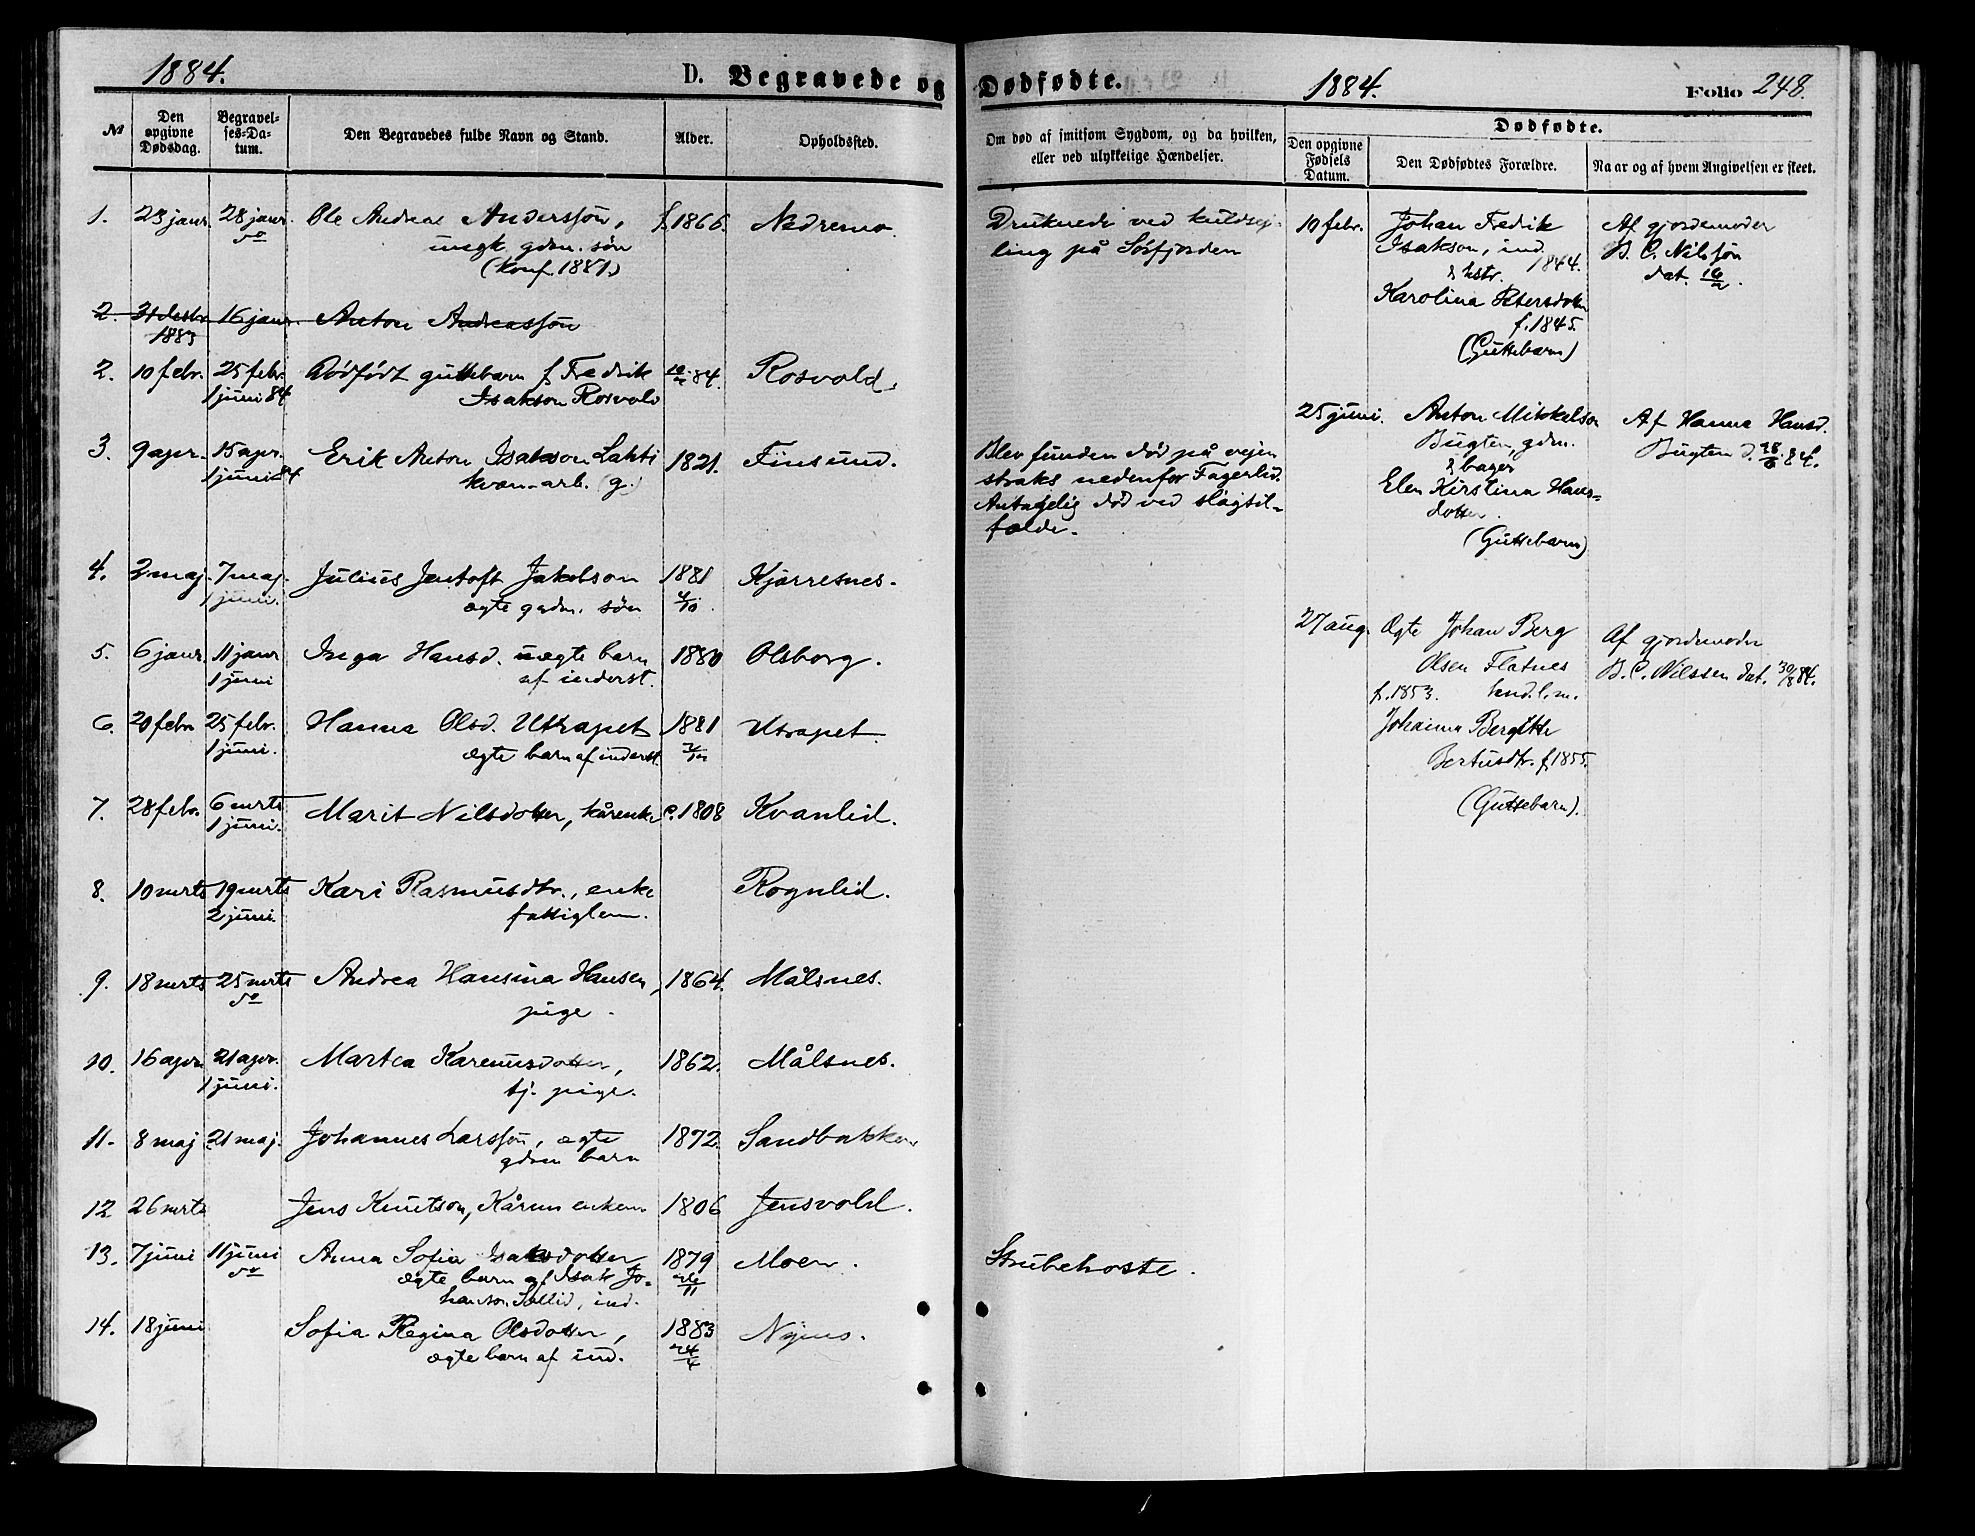 1884. D. Begravede og
№
Den opgivne Dødsdag.
Begravelses-Datum.
Den Begravedes fulde Navn og Stand.
Alder.
Opholdssted.
1. 23 janr. 28 janr. Ole Andreas Anderssön, f. 1866. Nedremo.
do ugk. gdm. sön
(konf. 1881.)
2. 31 desbr 16 janr. Anton Andreassön
1883
2. 10 febr. 25 febr. Dödfödt guttebarn f. Fredrik 10/2 84. Rosvold.
1 juni 84 Isakson Rosvold
3. 9 apr. 15 apr. Erik Anton Isakson Lahti 1821. Finsund.
1 juni 84 kvæn-arb. (g.)
4. 2 maj. 7 maj. Julius Jentoft Jakobson 1881 Kjærresnes.
1 juni. ægte gdm. sön 4/10.
5. 6 janr. 11 janr Inga Hansd. uægte barn 1880 Olsborg.
1 juni af inderst.
6. 20 febr 25 febr. Hanna Olsd. Utrapet 1881 Utrapet.
1 juni. ægte barn af inderst.
7. 28 febr. 6 mrts Marit Nilsdotter, kårenke c. 1808 Kvanlid.
1 juni.
8. 10 mrts 19 mrts Kari Rasmusdtr., enke Rognlid.
2 juni. fattiglem.
9. 18 mrts 25 mrts Andrea Hansina Hansen, 1864. Målsnes.
do pige.
10. 16 apr. 21 apr. Martea Karenusdotter, 1862. Målsnes.
1 juni. tj. pige.
11. 8 maj 21 maj. Johannes Larssön, ægte 1872. Sandbakken
gdm barn
12 26 mrts Jens Knutson, Kårm. enkem. 1806 Jensvold.
13. 7 juni 11 juni Anna Sofia Isaksdotter 1879 Moen.
do ægte barn af Isak Jo-
hanson Sollid, ind. 26/11
14. 18 juni Sofia Regina Olsdotter, 1883 Nymo.
ægte barn af ind. 24/4
Dødfødte. 1884. Folio 248.
Om død af smitsom Sygdom, og da hvilken, eller ved ulykkelige Hændelser.
Dødfødte.
Den opgivne Fødsels Datum.
Den Dødfødtes Forældre.
Naar og af hvem Angivelsen er skeet.
Druknede ved kuldsej-
ling på Sörfjorden
Blev funden död på vejen
straks nedenfor Fagerlid.
Antagelig död ved slagtil-
fælde.
Strubehoste.
10 febr. Johan Fredrik Af gjordemoder
Isakson, ind. B. C. Nilssön
1844. dat. 16/2.
& hstr.
Karolina Petersdotter
f. 1845.
(Guttebarn)
25 juni. Anton Mikkelson Af Hanna Hansd.
Bugten, gdm. Bugten d. 28/6 84.
Elen Kirstina Hans-
dotter.
(Guttebarn)
27 aug. Ægte Johan Berg Af gjordemoder
Olsen Flatnes B. C. Nilssen dat. 30/8 84.
f. 1853.
Johanna Bergitte
Bertusdtr. f. 1855.
(Guttebarn).